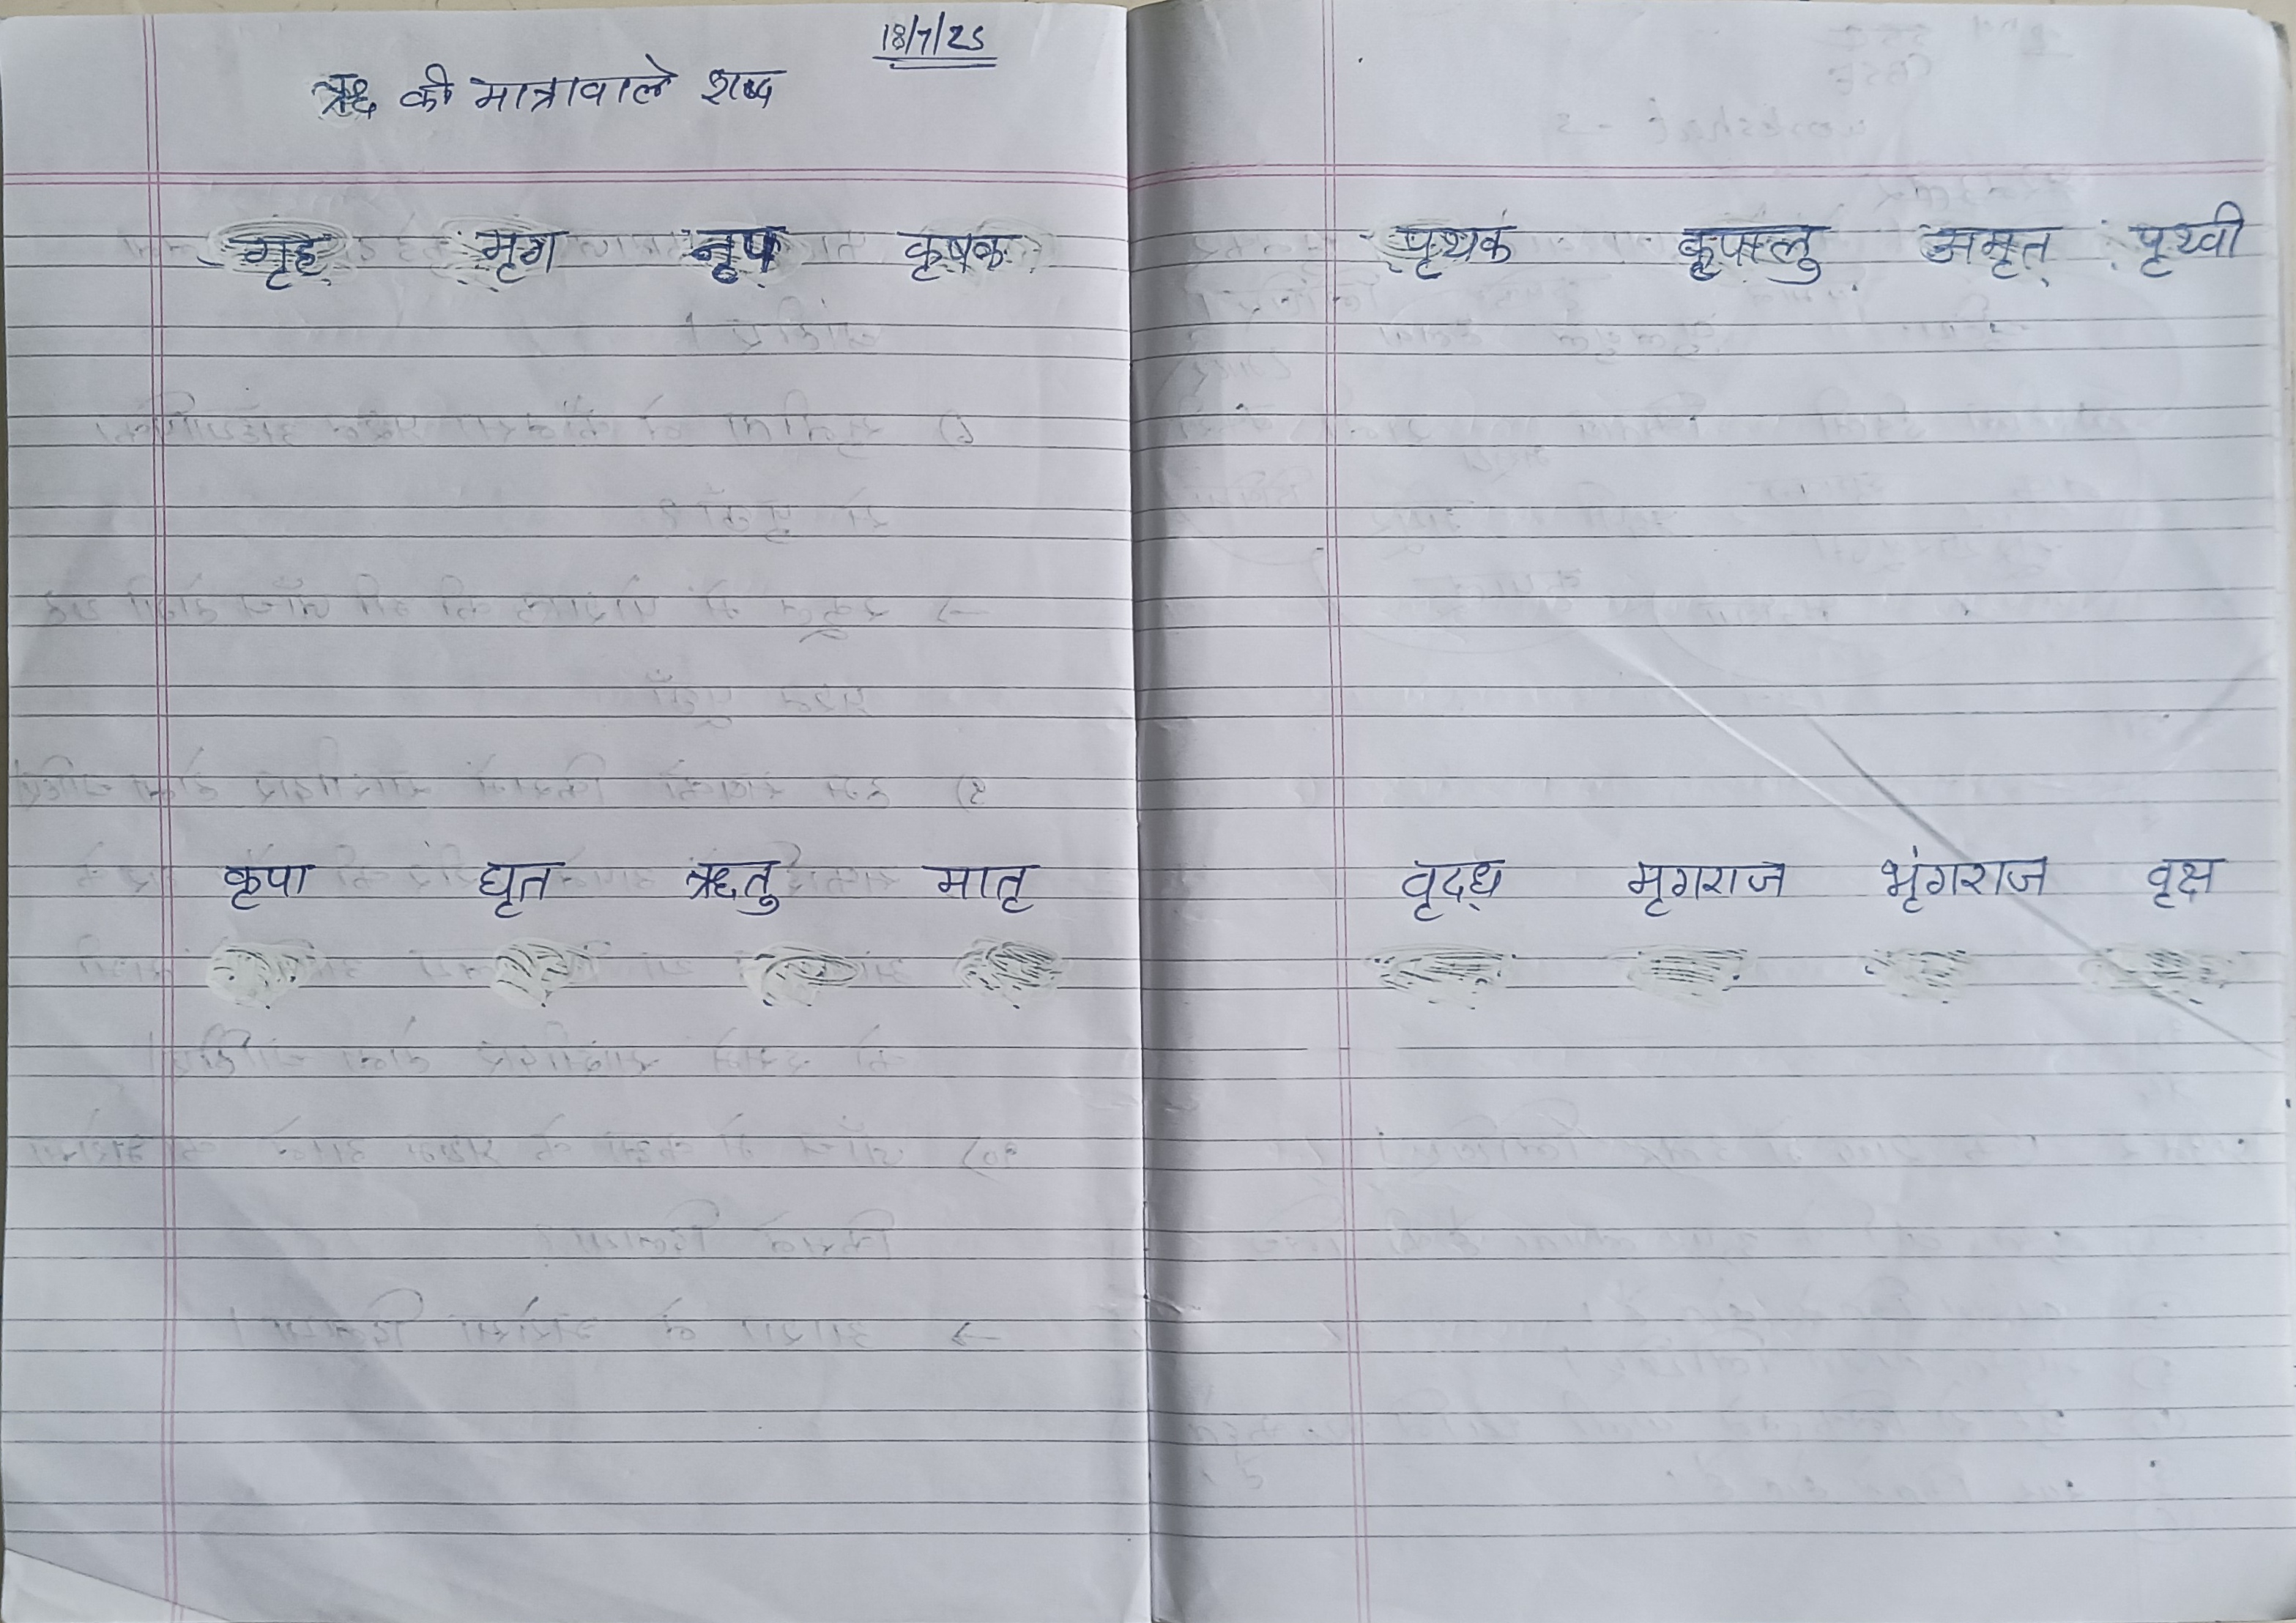 18/7/25
ऋ की मात्रावाले शब्द
गृह मृग नृप कृषक
कृपा घृत ऋतु मातृ
पृथक कृपालु अमृत पृथ्वी
वृद्ध मृगराज भृंगराज वृक्ष